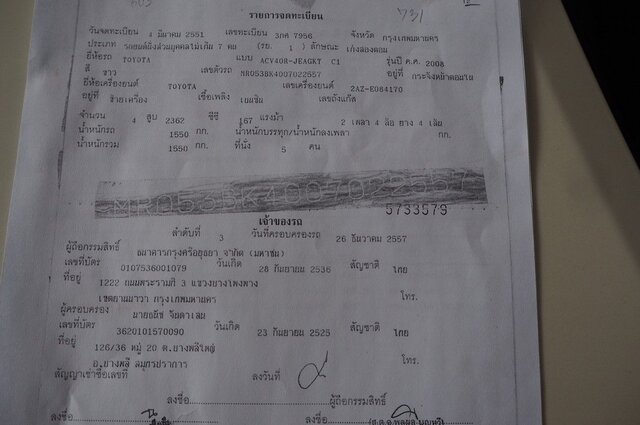 731
รายการจดทะเบียน
วันจดทะเบียน 4 มีนาคม 2551 เลขทะเบียน 3กศ 7956 จังหวัด กรุงเทพมหานคร
ประเภท รถยนต์นั่งส่วนบุคคลไม่เกิน 7 คน (รย. 1) ลักษณะ เก๋งสองตอน
ยี่ห้อรถ TOYOTA แบบ ACV40R-JEAGKT C1 รุ่นปี ค.ศ. 2008
สี ขาว เลขตัวรถ NR053BK4007022557 อยู่ที่
ยี่ห้อเครื่องยนต์ TOYOTA เลขเครื่องยนต์ 2AZ-E084170
อยู่ที่ ซ้ายเครื่อง เชื้อเพลิง เบนซิน เลขถังแก๊ส
จำนวน 4 สูบ 2362 ซีซี 167 แรงม้า 2 เพลา 4 ล้อ ยาง 4 เส้น
น้ำหนักรถ 1550 กก. น้ำหนักบรรทุก/น้ำหนักลงเพลา กก.
น้ำหนักรวม 1550 กก. ที่นั่ง 5 คน
MR053BK4007022557
5733579
เจ้าของรถ
ลำดับที่ 3 วันที่ครอบครองรถ 26 ธันวาคม 2557
ผู้ถือกรรมสิทธิ์ ธนาคารกรุงศรีอยุธยา จำกัด (มหาชน)
เลขที่บัตร 0107536001079 วันเกิด 28 กันยายน 2536 สัญชาติ ไทย
ที่อยู่ 1222 ถนนพระรามที่ 3 แขวงบางโพงพาง
เขตยานนาวา กรุงเทพมหานคร โทร.
ผู้ครอบครอง
เลขที่บัตร 3620101570090 วันเกิด 23 กันยายน 2525 สัญชาติ ไทย
ที่อยู่ 126/36 หมู่ 20 ต.บางพลีใหญ่
อ.บางพลี สมุทรปราการ โทร.
สัญญาเช่าซื้อเลขที่ ลงวันที่
ลงชื่อ ผู้ถือกรรมสิทธิ์
ลงชื่อ ลงชื่อ